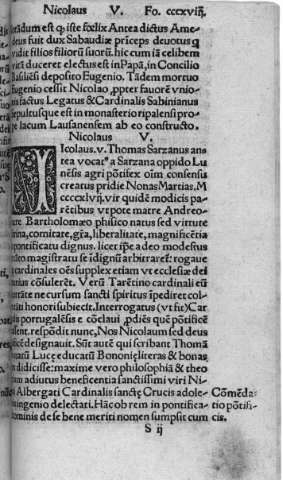 Nicolaus V. Fo. cccxviij.
tradũm est q̃ iste fœlix Antea dictus Ame-
deus fuit dux Sabaudiæ prĩceps deuotus q
vidit filios filiorũ suorũ. hic cum iã celibem
vitã duceret electus est in Papã, in Concilio
Basiliẽsi deposito Eugenio. Tãdem mortuo
Eugenio cessit Nicolao, ppter fauorẽ vnio-
nis factus Legatus & Cardinalis Sabinianus
sepultusque est in monasterio ripalensi pro-
pe lacum Lausanensem ab eo constructo.
Nicolaus V.
Nicolaus. v. Thomas Sarzanus an-
tea vocatꝰ a Sarzana oppido Lu
nẽsis agri põtifex oĩm consensu
creatus pridie Nonas Martias. M
ccccxlvij. vir quidẽ modicis pa-
rẽtibus vtpote matre Andreo-
Bartholomæo phisico natus sed virtute
comitate, grã, liberalitate, magnificẽtia
pontificatu dignus. licet ipse adeo modestus
magistratu se idignũ arbitraret: rogaue
cardinales oẽs supplex etiam vt ecclesiæ dei
cõsulerẽt. Verũ Tarẽtino cardinali eũ
ne cursum sancti spiritus ĩpediret col-
honori subiecit. Interrogatus (vt fit) Car
portugalẽsis e cõclaui, pdiẽs quẽ põtificẽ
respõdit nunc, Nos Nicolaum sed deus
designauit. Sũt autẽ qui scribant Thomã
Lucę educatũ Bononię literas & bonas
didicisse: maxime vero philosophiã & theo
adiutus beneficentia sanctissimi viri Ni-
Albergati Cardinalis sanctę Crucis adole- Cõmẽda-
ingenio delectati. Hãc ob rem in pontifica- tio põtifi-
hominis de se bene meriti nomen sumpsit cum cis.
S ij